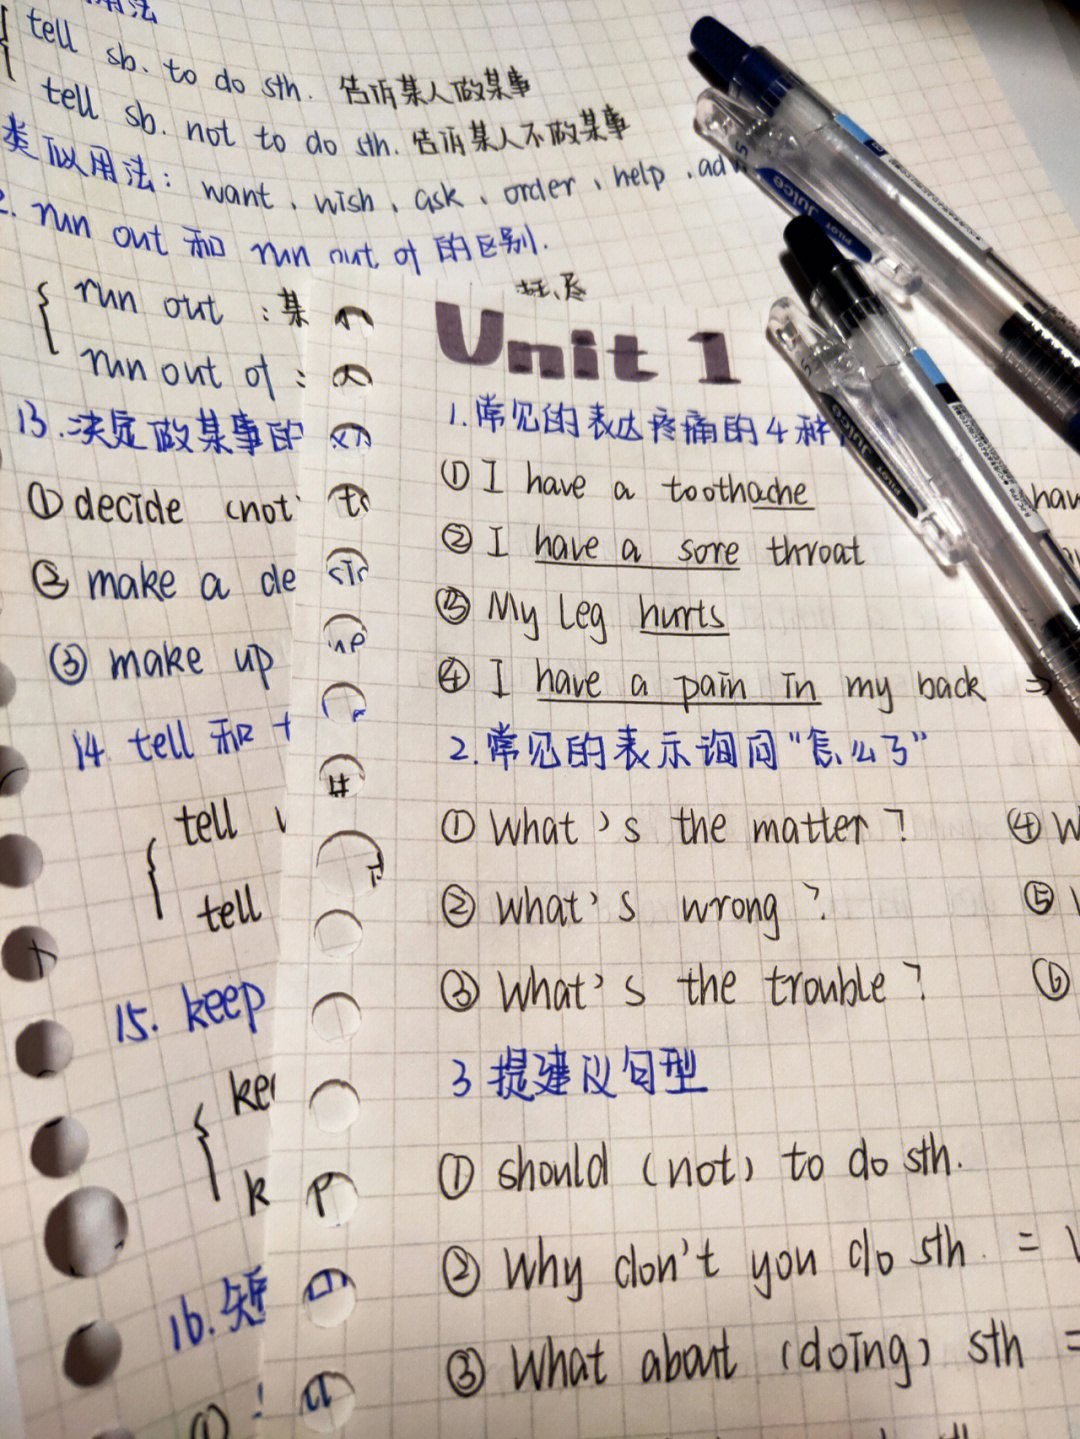 用法
tell sb. to do sth. 告诉某人做某事
tell sb. not to do sth. 告诉某人不做某事
类似用法: want、wish、ask、order、help、
2. run out 和 run out of 的区别.
run out :某
run out of :
13.决定做某事的
①decide (not
② make a de
③ make up
14. tell 和
tell
tell
15. keep
ke
k
16.短
①
Unit 1
1.常见的表达疼痛的4种
① I have a toothache
② I have a sore throat
③ My leg hurts
④ I have a pain in my back ⇒
2.常见的表示询问"怎么了"
① What's the matter? ④ W
② What's wrong? ⑤
③ What's the trouble? ⑥
3 提建议句型
① should (not) to do sth.
② Why don't you do sth. =
③ What about (doing) sth =
Juice PILOT
Juice PILOT